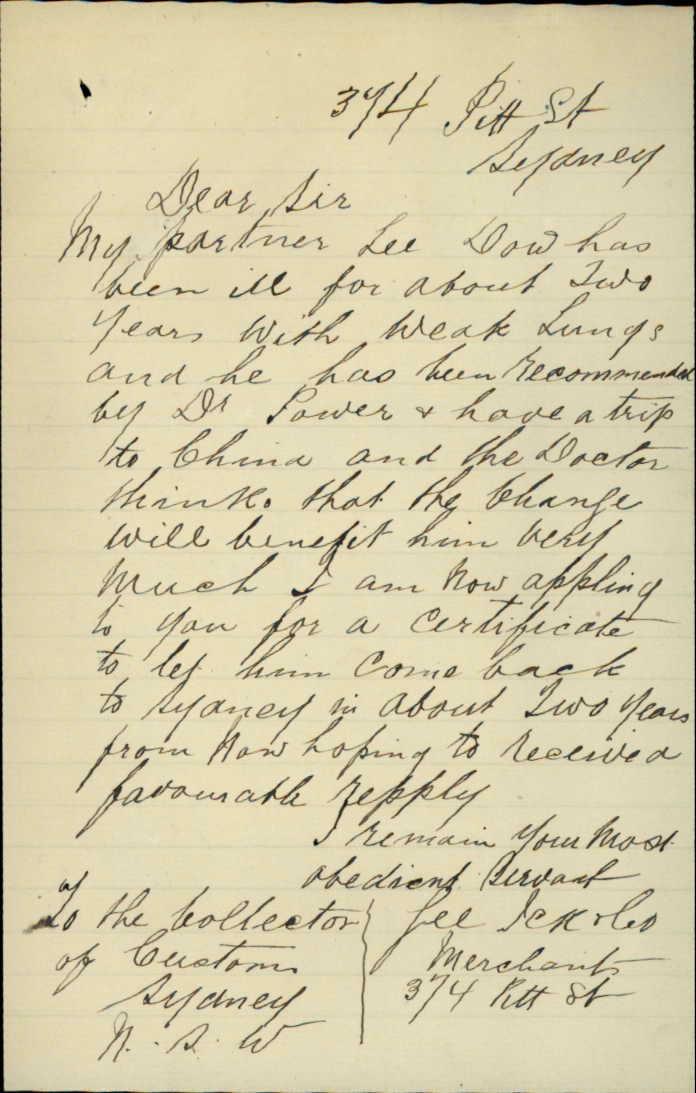 374 Pitt St
Sydney
Dear Sir
My partner Lee Dow has
been ill for about Two
Years With Weak Lungs
and he has been recommended
by Dr Power & have a trip
to China and the Doctor
thinks that the Change
will benefit him very
much I am Now appling
to you for a Certificate
to let him Come back
to Sydney in about Two Years
from Now hoping to receive a
favourable repply
I remain Your Most
obedient Servant
To the Collector
of Customs
Sydney
N. S. W
Ick & Co
Merchants
374 Pitt St